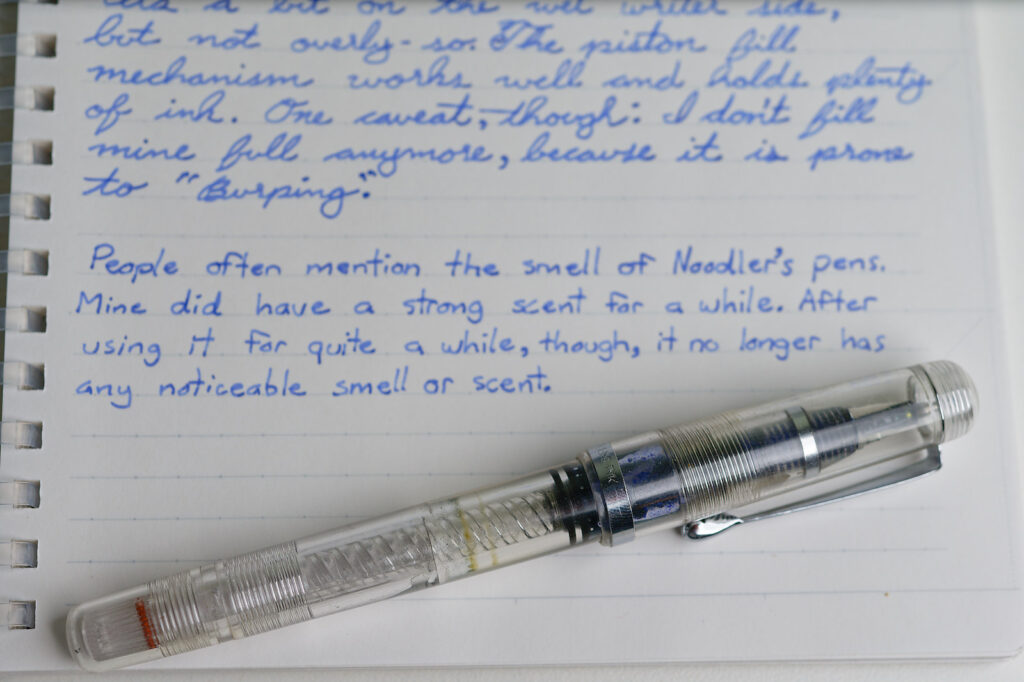 a bit on the wet writer side,
but not overly-so. The piston fill
mechanism works well and holds plenty
of ink. One caveat, though: I don't fill
mine full anymore, because it is prone
to "Burping".
People often mention the smell of Noodler's pens.
Mine did have a strong scent for a while. After
using it for quite a while, though, it no longer has
any noticeable smell or scent.